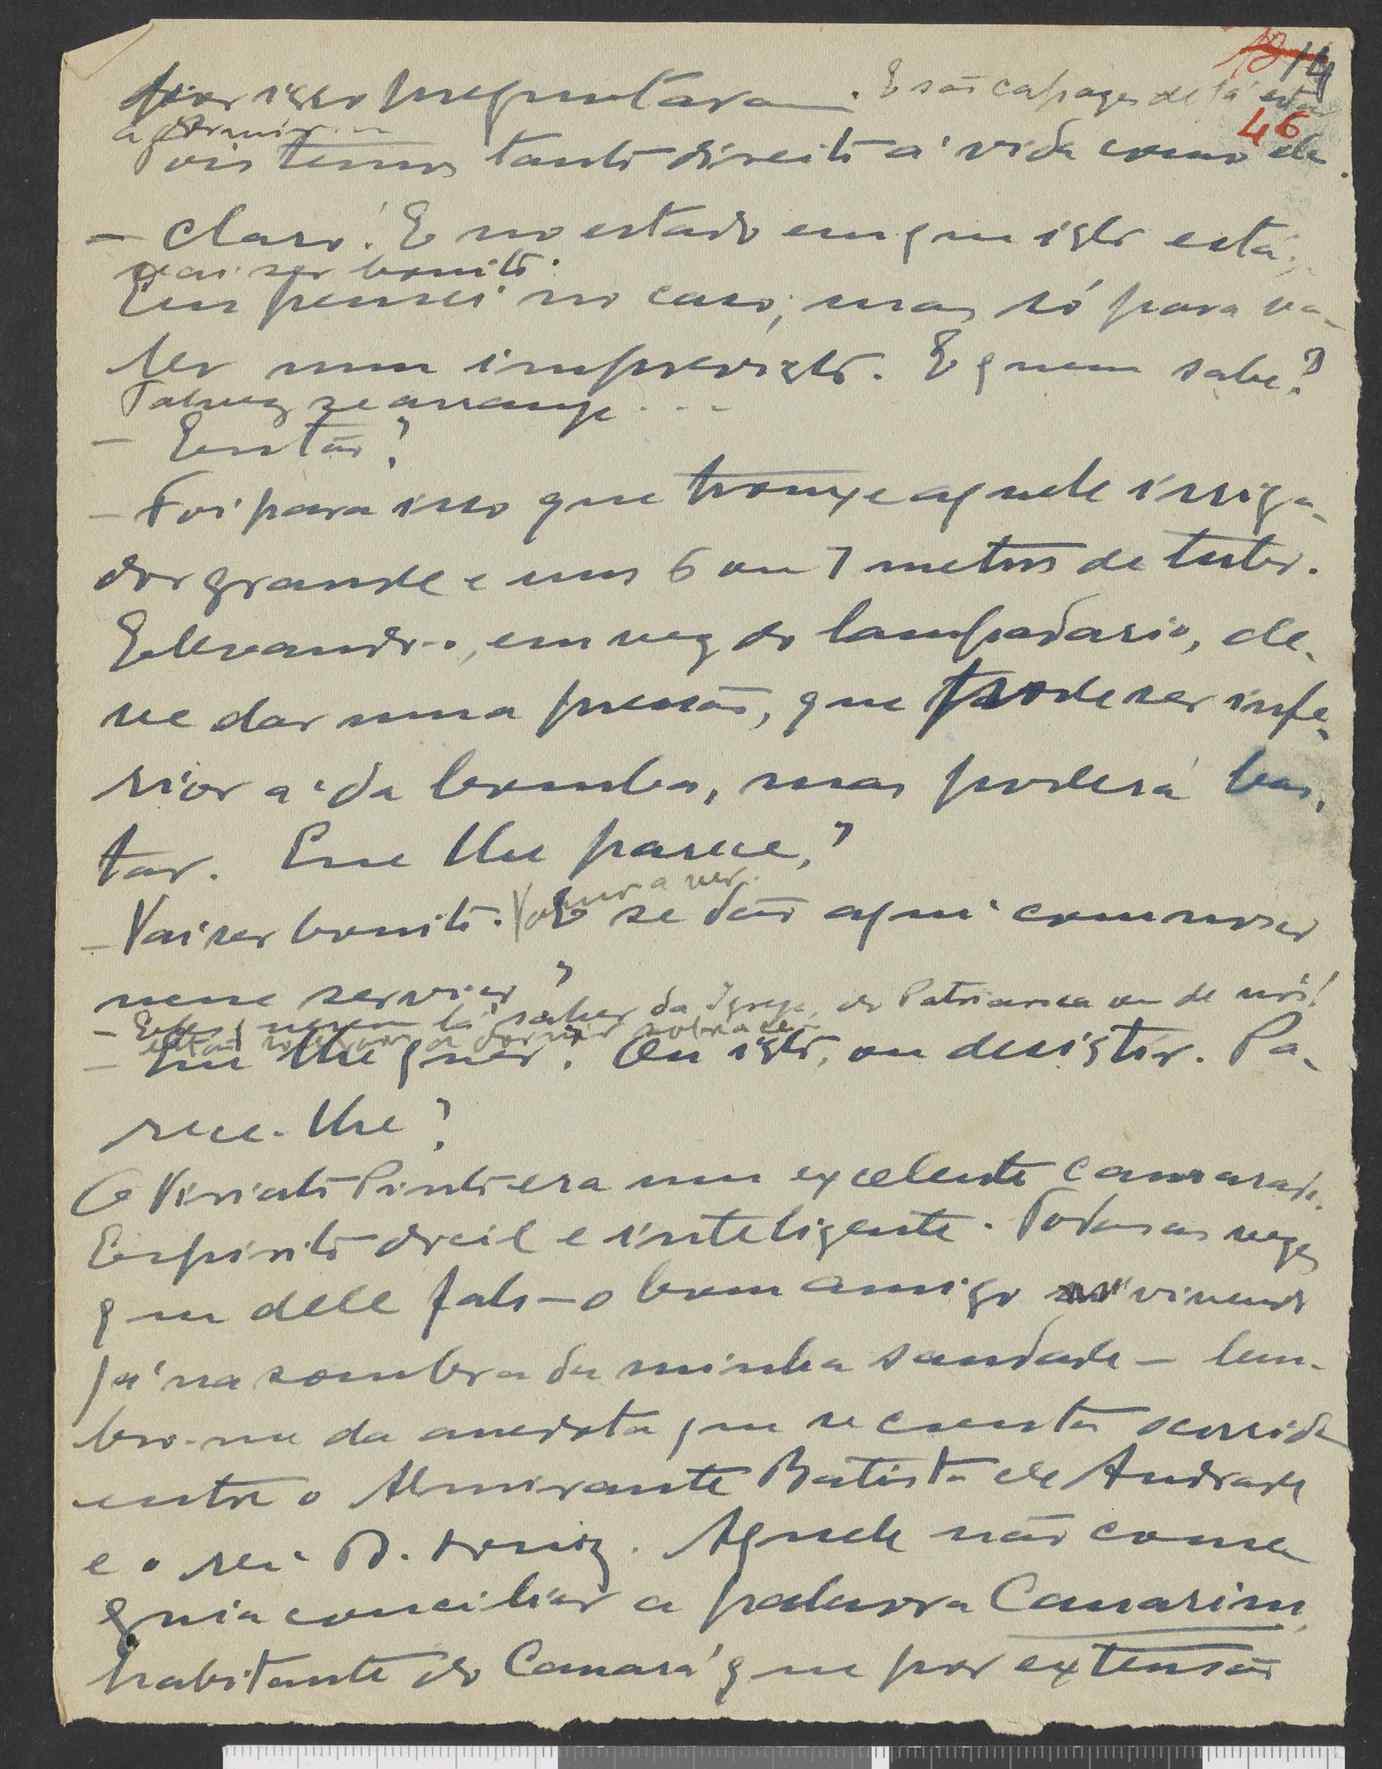 14
46
por isso preguntavam. E são capazes de lá estar
a dormir...
Pois temos tanto direito á vida como ele.
– Claro! E no estado em que isto está,
vai ser bonito.
Eu pensei no caso, mas só para va-
ler num imprevisto. E quem sabe?
Talvez se arranje...
– Então?
– Foi para isso que trouxe aquele irriga-
dor grande e uns 6 ou 7 metros de tubo.
Elevando-o, em vez do lampadario, de-
ve dar uma pressão, que pode ser infe-
rior a'da bomba, mas poderá bas-
tar. Que lhe parece?
– Vai ser bonito. Vamos a ver. E se dão aqui comnosco
nesse serviço?
– Eles querem lá saber da Igreja, do Patriarca ou de nós!
estão a dormir
– Que lhe quer? Ou isto, ou desistir. Pa-
rece-lhe?
O Viriato Pinto era um excelente camarada.
Espirito docil e inteligente. Todas as vezes
que dele falo – o bom amigo vivendo
já na sombra da minha saudade – lem-
bro-me da anedota que se conta ocorrida
entre o Almirante Batista de Andrade
e o rei D. Luiz. Aquele não conse
guia conciliar a palavra Canarim,
habitante do Canará que por extensão